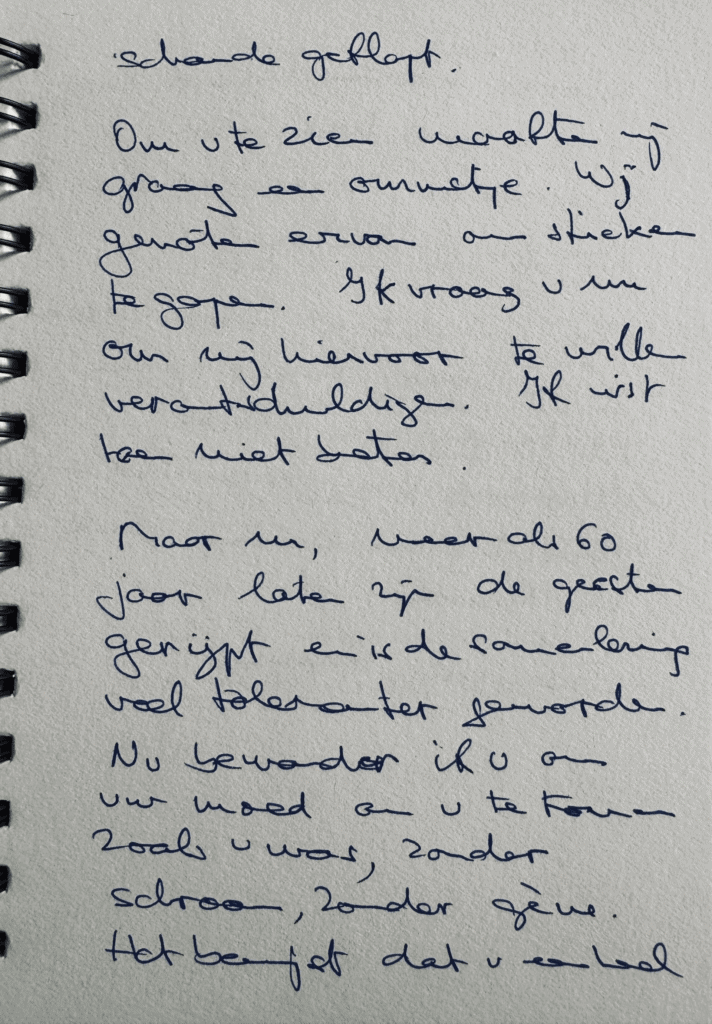 schande geflapt.
Om u te zien maakte wij
graag een ommetje. Wij
genoten ervan om stiekem
te gapen. Ik vraag u nu
om mij hiervoor te willen
verontschuldigen. Ik wist
toen niet beter.
Maar nu, meer als 60
jaar later zijn de geesten
gerijpt en is de samenleving
veel toleranter geworden.
Nu bewonder ik u om
uw moed om u te tonen
zoals u was, zonder
schroom, zonder gêne.
Het bewijst dat u een heel